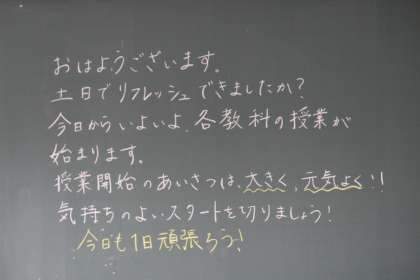 おはようございます。
土日でリフレッシュできましたか?
今日からいよいよ、各教科の授業が
始まります。
授業開始のあいさつは、大きく、元気よく!!
気持ちのよいスタートを切りましょう!
今日も1日頑張ろう!